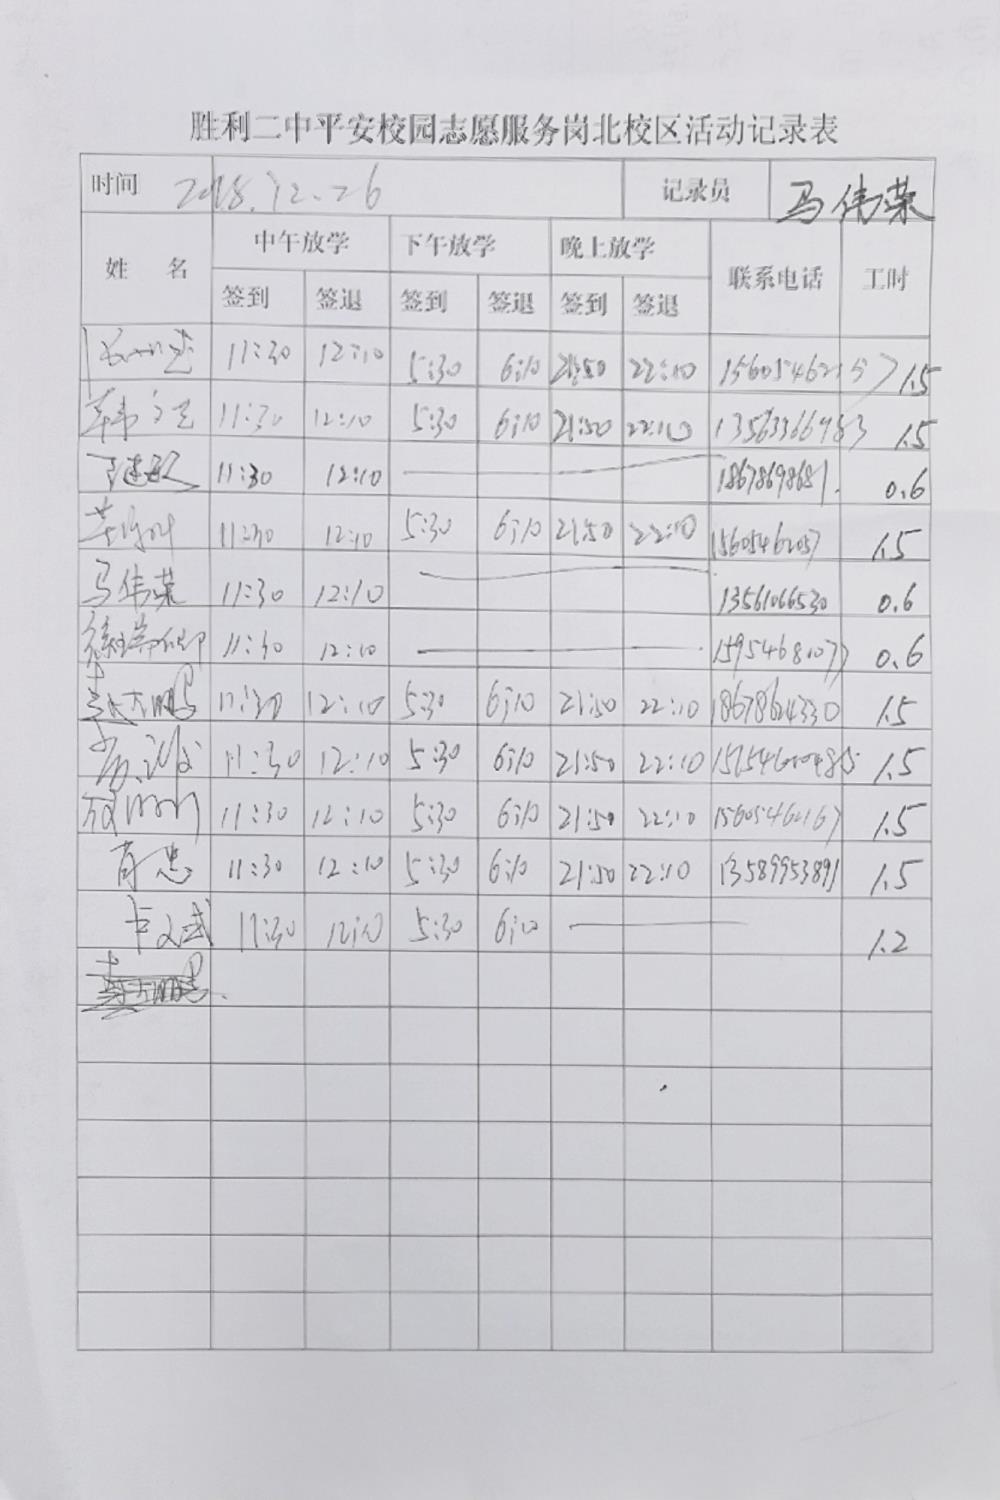 胜利二中平安校园志愿服务岗北校区活动记录表
时间 2018.12.26 记录员 马伟荣
姓 名 中午放学 下午放学 晚上放学 联系电话 工时
签到 签退 签到 签退 签到 签退
11:30 12:10 5:30 6:10 21:50 22:10 1.5
11:30 12:10 5:30 6:10 21:50 22:10 1.5
11:30 12:10 18678698681. 0.6
11:30 12:10 5:30 6:10 21:50 22:10 15605462057 1.5
马伟荣 11:30 12:10 13561066530 0.6
11:30 12:10 15954681077 0.6
11:30 12:10 5:30 6:10 21:50 22:10 18678624330 1.5
11:30 12:10 5:30 6:10 21:50 22:10 1.5
11:30 12:10 5:30 6:10 21:50 22:10 15605462167 1.5
肖忠 11:30 12:10 5:30 6:10 21:50 22:10 13589953891 1.5
11:30 12:10 5:30 6:10 1.2